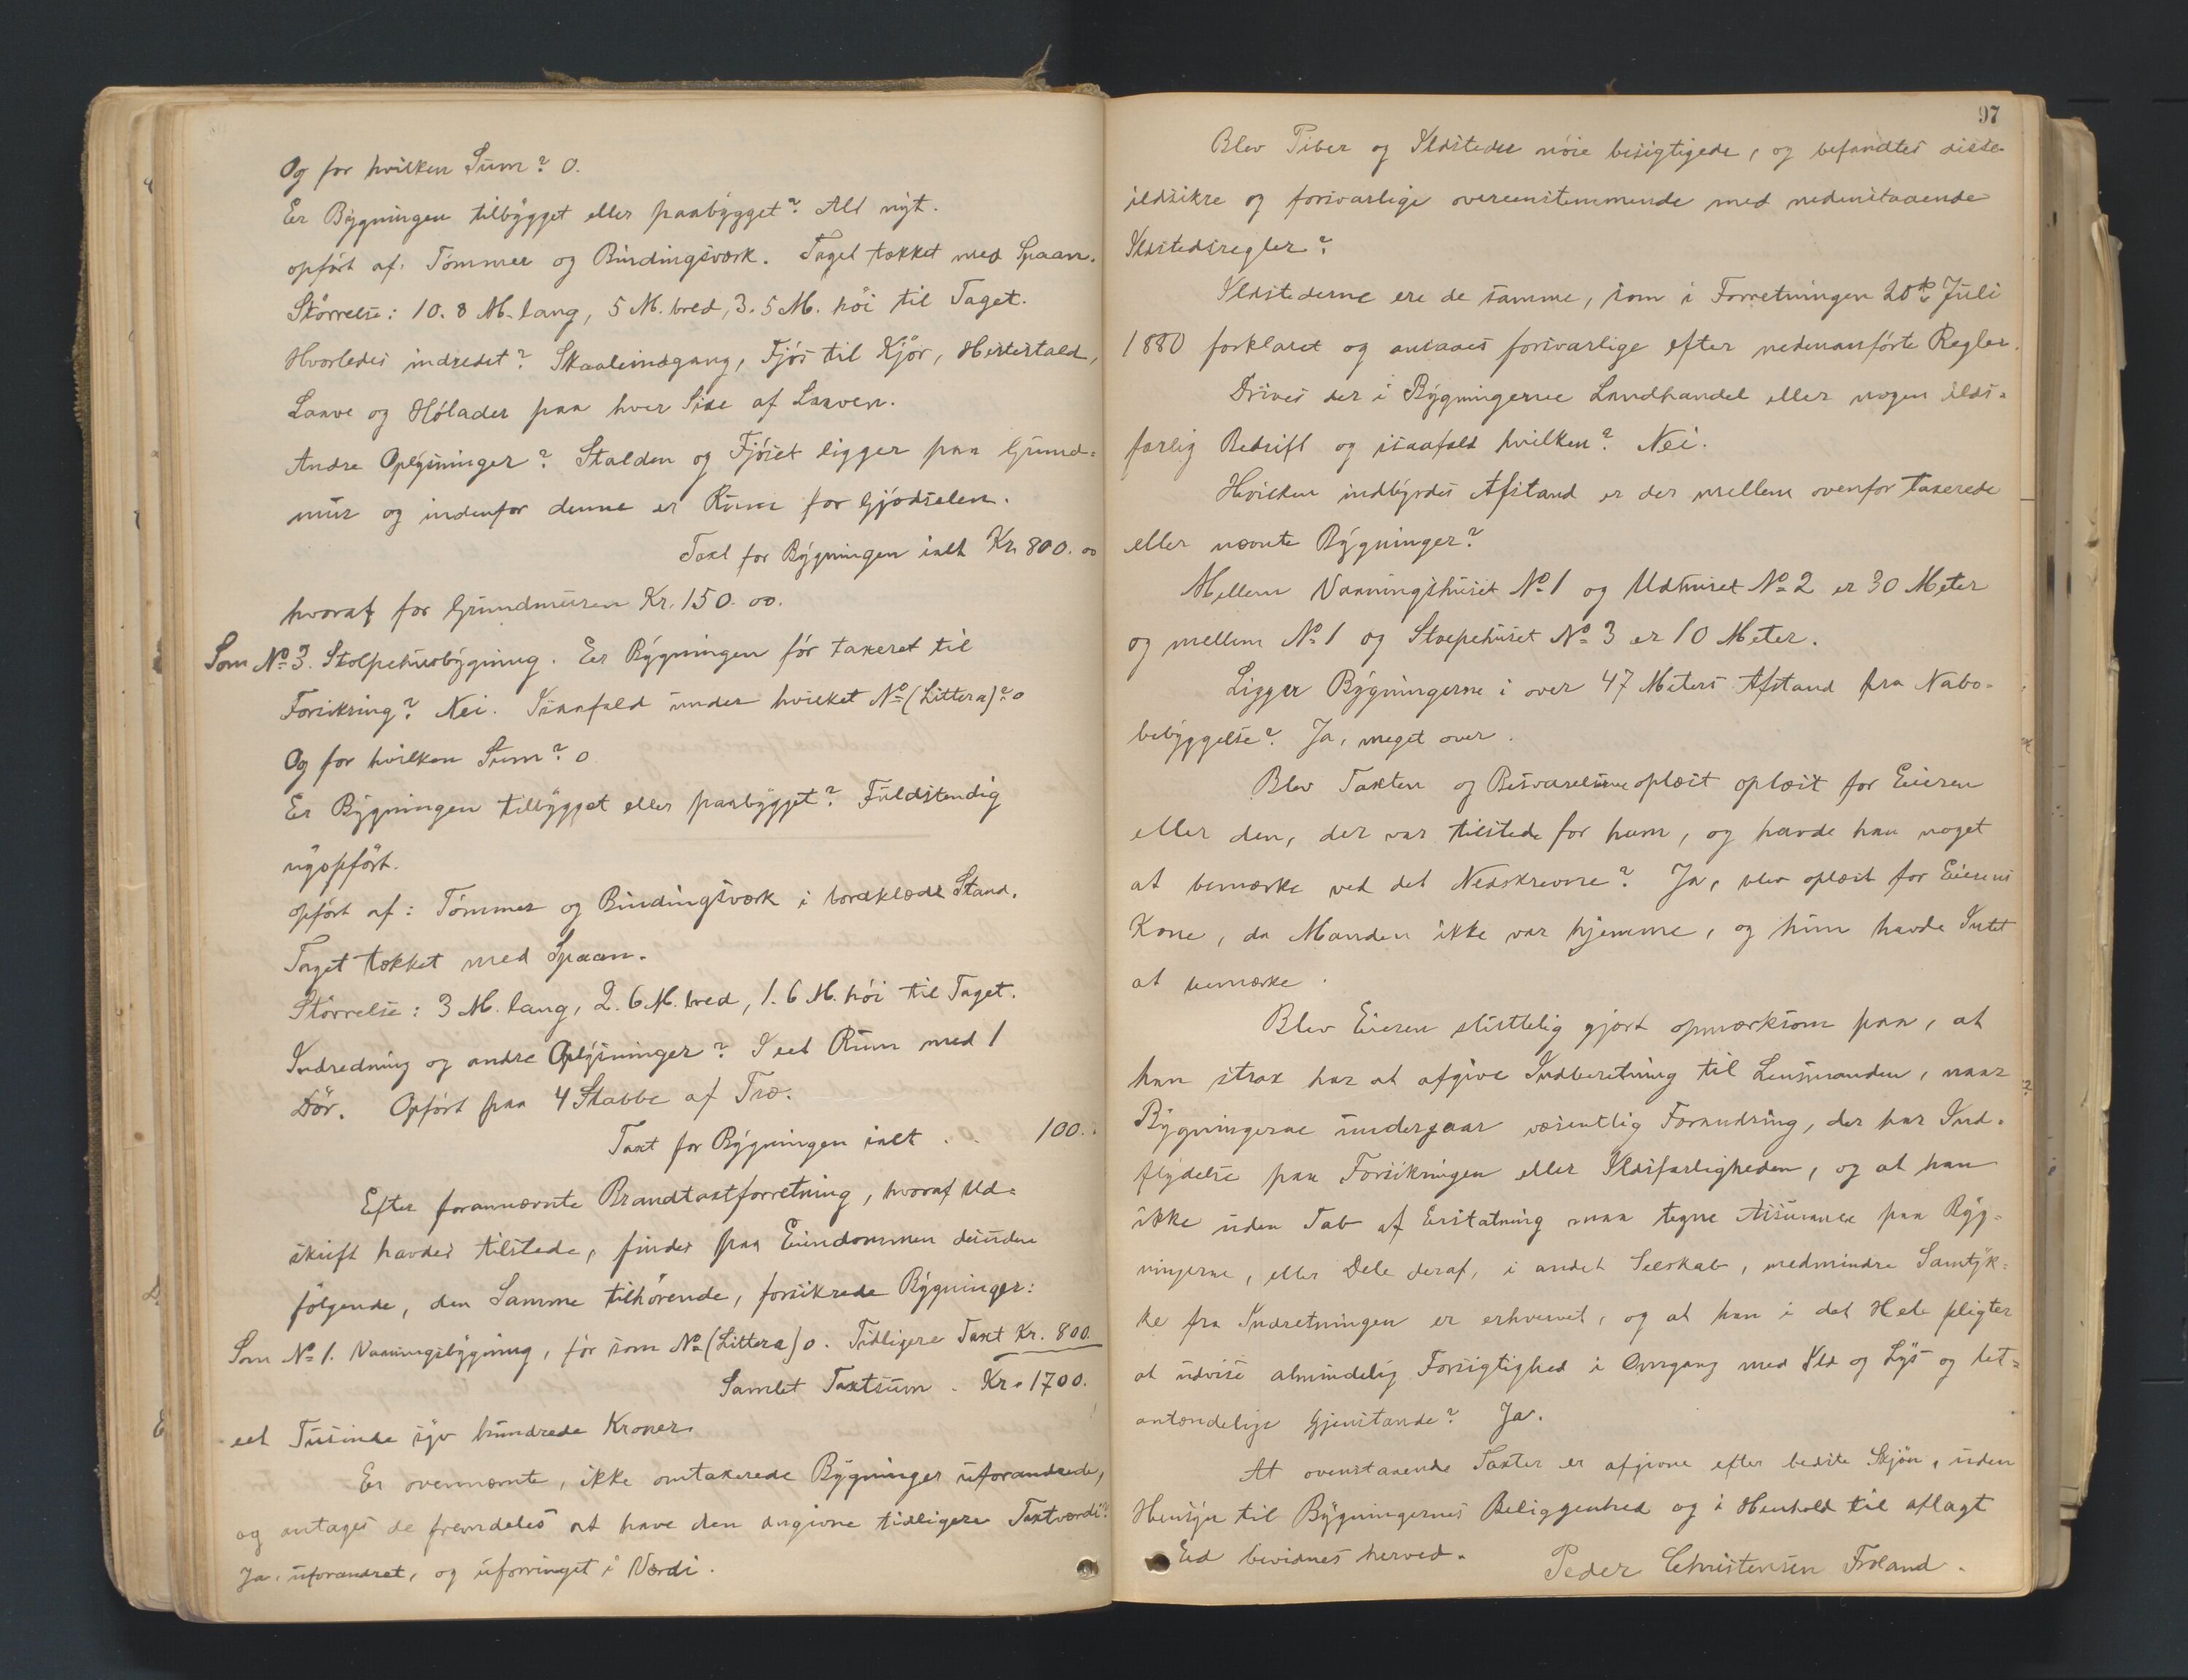 Og for hvilken Sum? 0.
Er Bygningen tilbygget eller paabygget? Alt nyt.
opført af: Tømmer og Bindingsværk. Taget tækket med Spaan.
Størrelse: 10.8 M. lang, 5 M. bred, 3.5 M. høi til Taget.
Hvorledes indredet? Skaaleindgang, Fjøs til Kjør, Hestestald,
Laave og Hølader paa hver Side af Laaven.
Andre Oplysninger? Stalden og Fjøset ligger paa Grund-
mur og indenfor denne er Rum for Gjødselen.
Taxt for Bygningen ialt Kr. 800. 00
hvoraf for Grundmuren Kr. 150. 00.
Som No 3. Stolpehusbygning. Er Bygningen før taxeret til
Forsikring? Nei. Isaafald under hvilket No (Littera)? 0
Og for hvilken Sum? 0
Er Bygningen tilbygget eller paabygget? Fuldstendig
nyopført.
opført af: Tømmer og Bindingsværk i bordklædt Stand.
Taget tækket med Spaan.
Størrelse: 3 M. lang, 2.6 M. bred, 1.6 M. høi til Taget.
Indredning og andre Oplysninger? I eet Rum med 1
Dør. Opført paa 4 Stabbe af Træ.
Taxt for Bygningen ialt . . 100.
Efter forannævnte Brandtaxtforretning, hvoraf Ud-
skrift havdes tilstede, findes paa Eiendommen desuden
følgende, den Samme tilhørende, forsikrede Bygninger:
Som No 1. Vaaningsbygning, før som No (Littera) 0. Tidligere Taxt Kr. 800.
Samlet Taxtsum . Kr. 1700.
eet Tusinde syv hundrede Kroner.
Er ovennævnte, ikke omtaxerede Bygninger uforandrede,
og antages de fremdeles at have den angivne tidligere Taxtværdi?
Ja, uforandret, og uforringet i Værdi.
97
Blev Piber og Ildsteder nöie besigtigede, og befandtes disse
ildsikre og forsvarlige overeenstemmende med nedenstaaende
Ildstedsregler?
Ildstederne ere de samme, som i Forretningen 20de Juli
1880 forklaret og ansaaes forsvarlige efter nedenanførte Regler.
Drives der i Bygningerne Landhandel eller nogen ilds-
farlig Bedrift og isaafald hvilken? Nei.
Hvilken indbyrdes Afstand er der mellem ovenfor taxerede
eller nævnte Bygninger?
Mellem Vaaningshuset No 1 og Udhuset No 2 er 30 Meter
og mellem No 1 og Stolpehuset No 3 er 10 Meter.
Ligger Bygningerne i over 47 Meters Afstand fra Nabo-
bebyggelse? Ja, meget over.
Blev Taxten og Besvarelserne oplæst oplæst for Eieren
eller den, der var tilstede for ham, og havde han noget
at bemærke ved det Nedskrevne? Ja, blev oplæst for Eierens
Kone, da Manden ikke var hjemme, og hun havde Intet
at bemærke.
Blev Eieren sluttelig gjort opmærksom paa, at
han strax har at afgive Indberetning til Lensmanden, naar
Bygningerne undergaar væsentlig Forandring, der har Ind-
flydelse paa Forsikringen eller Ildsfarligheden, og at han
ikke uden Tab af Erstatning maa tegne Assurance paa Byg-
ningerne, eller Dele deraf, i andet Selskab, medmindre Samtyk-
ke fra Indretningen er erhvervet, og at han i det Hele pligter
at udvise almindelig Forsigtighed i Omgang med Ild og Lys og let-
antændelige Gjenstande? Ja.
At ovenstaaende Taxter er afgivne efter bedste Skjøn, uden
Hensyn til Bygningernes Beliggenhed og i Henhold til aflagt
Eed bevidnes herved. Peder Christensen Froland.